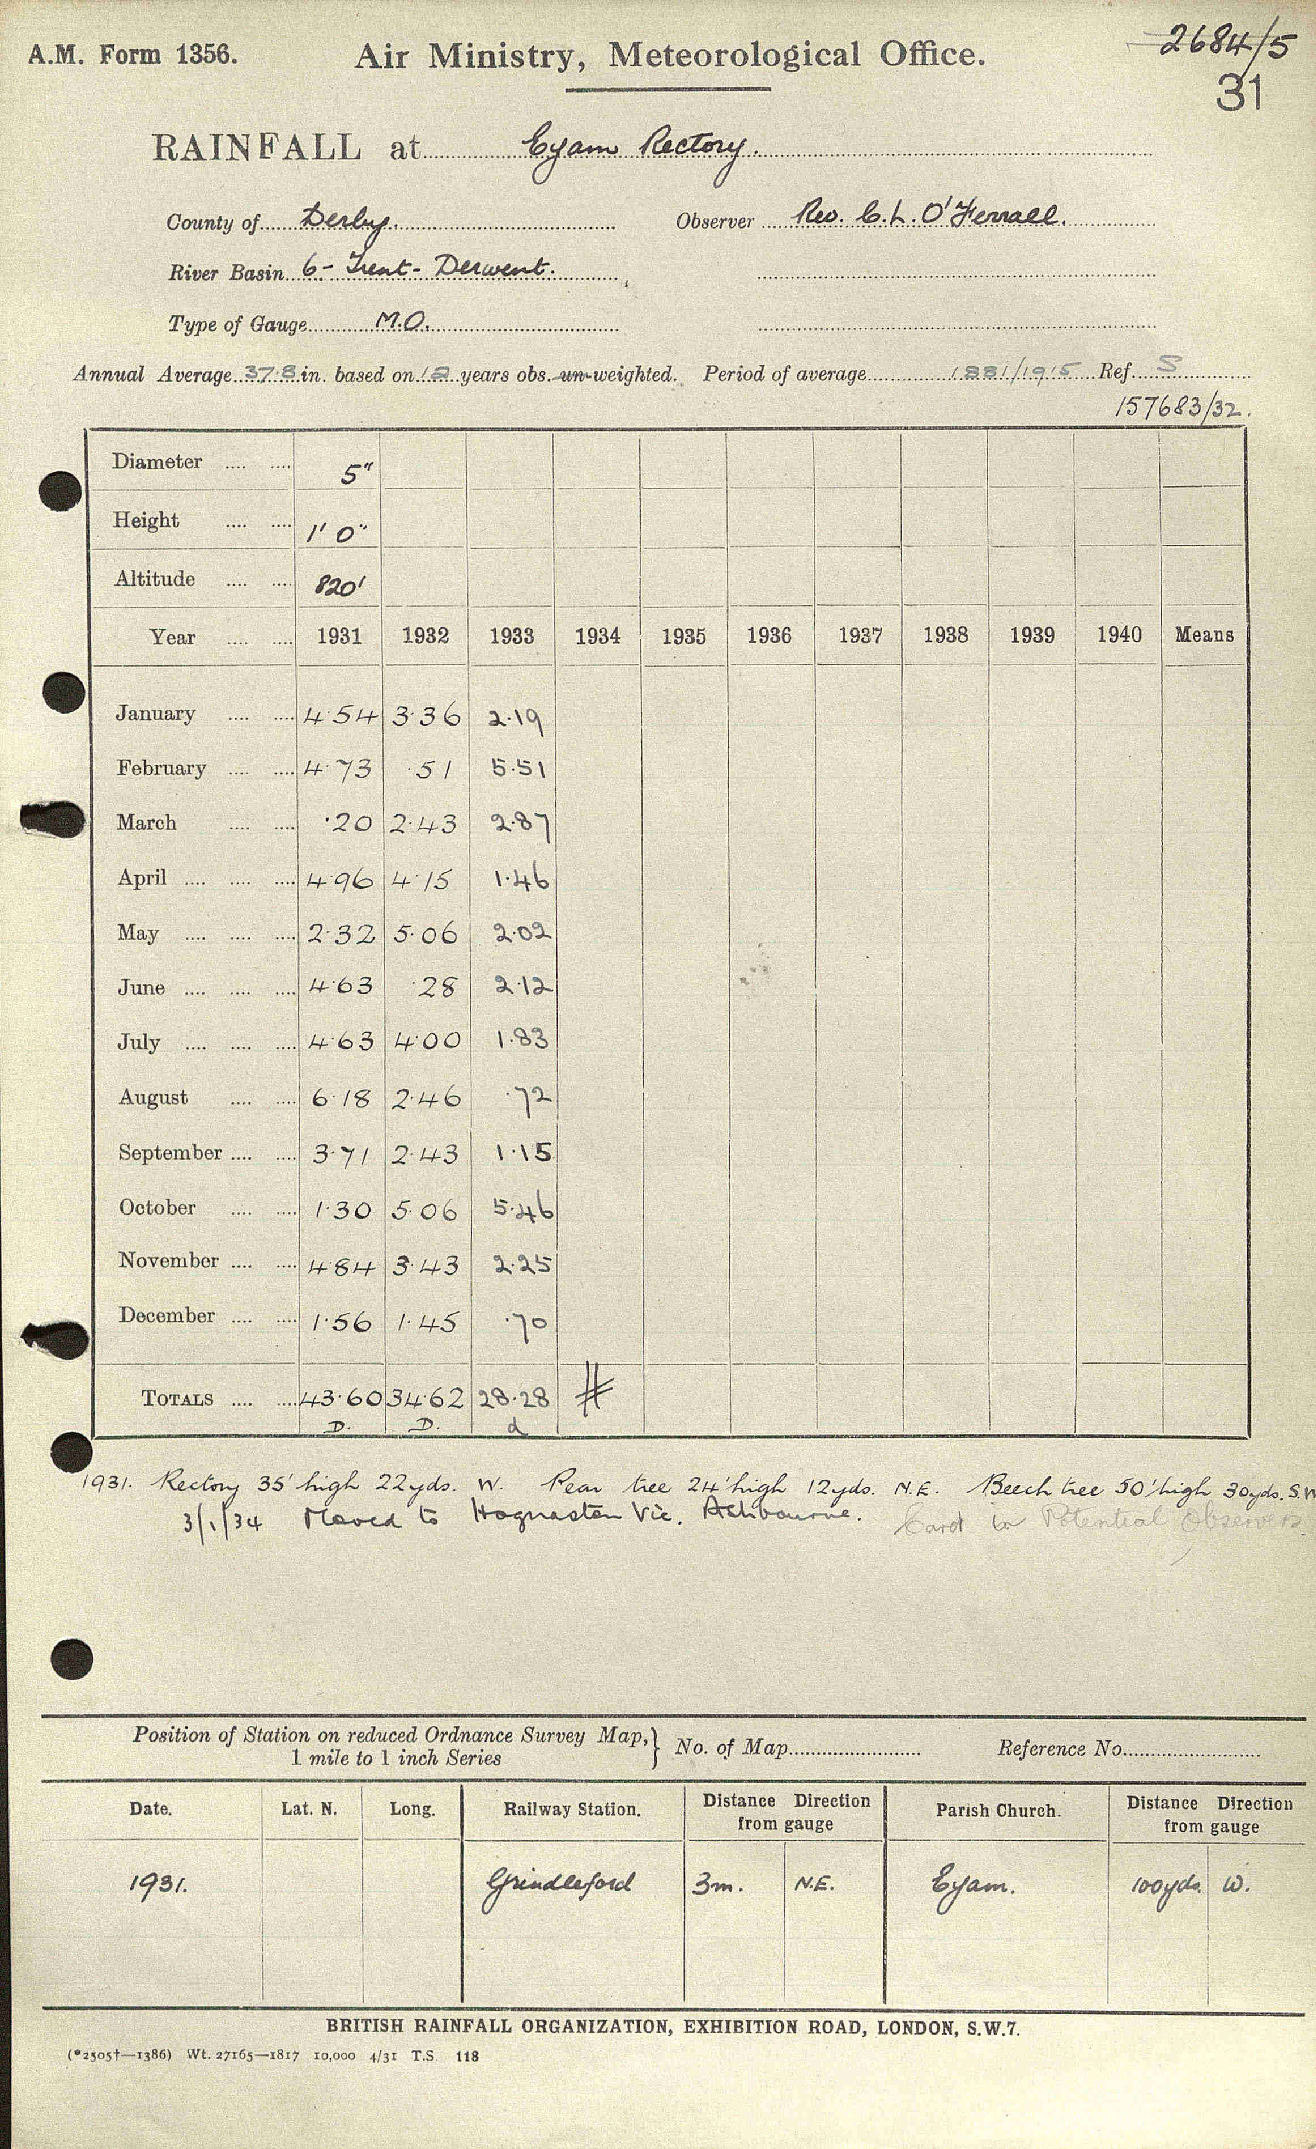 A.M. Form 1356. Air Ministry, Meteorological Office. 2684/5
31
RAINFALL at Eyam Rectory.
County of Derby. Observer Rev. C. L. O'Ferrall.
River Basin 6 - Trent - Derwent.
Type of Gauge M.O.
Annual Average 37.8 in. based on 12 years obs. un-weighted. Period of average 1881/1915 Ref. S
157683/32.
Diameter .... .... 5"
Height .... .... 1' 0"
Altitude .... .... 820'
Year .... .... 1931 1932 1933 1934 1935 1936 1937 1938 1939 1940 Means
January .... .... 4.54 3.36 2.19
February .... .... 4.73 .51 5.51
March .... .... .20 2.43 2.87
April .... .... .... 4.96 4.15 1.46
May .... .... .... 2.32 5.06 2.02
June .... .... .... 4.63 .28 2.12
July .... .... .... 4.63 4.00 1.83
August .... .... 6.18 2.46 .72
September .... .... 3.71 2.43 1.15
October .... .... 1.30 5.06 5.46
November .... .... 4.84 3.43 2.25
December .... .... 1.56 1.45 .70
TOTALS .... .... 43.60 34.62 28.28 #
D. D. d
1931. Rectory 35' high 22yds. W. Pear tree 24' high 12yds. N.E. Beech tree 50' high 30yds. S.W
3/1/34 Moved to Hognaston Vic. Ashbourne. Card in Potential Observers
Position of Station on reduced Ordnance Survey Map, } No. of Map.......... Reference No..........
1 mile to 1 inch Series
Date. Lat. N. Long. Railway Station. Distance Direction from gauge Parish Church. Distance Direction from gauge
1931. Grindleford 3m. N.E. Eyam. 100yds. W.
BRITISH RAINFALL ORGANIZATION, EXHIBITION ROAD, LONDON, S.W.7.
(*2505†—1386) Wt. 27165—1817 10,000 4/31 T.S. 118